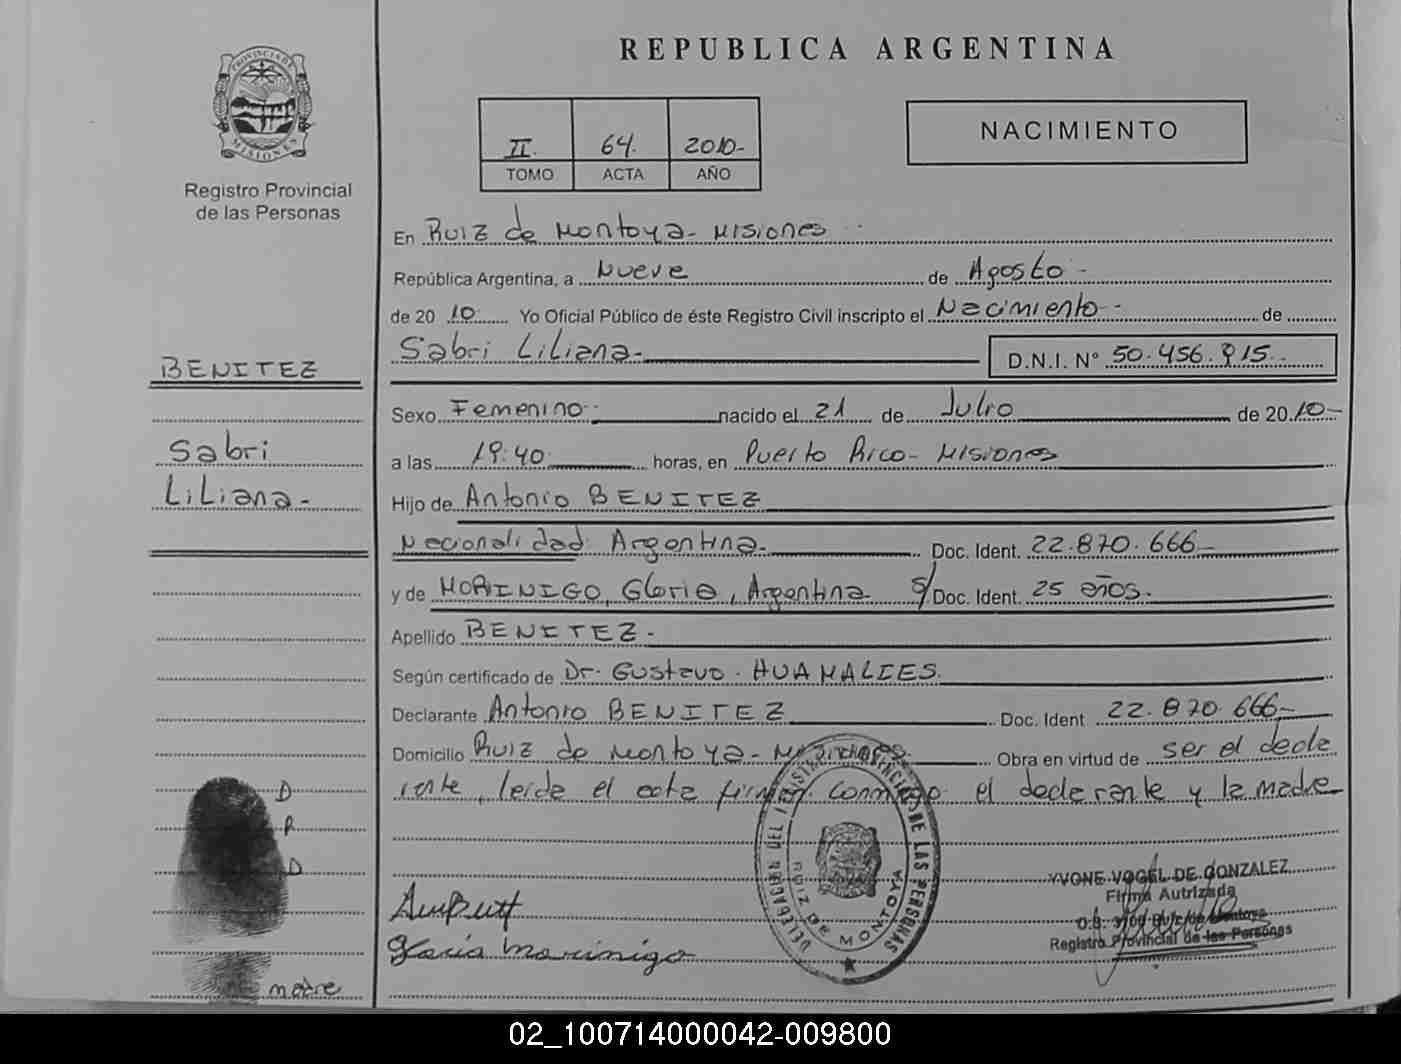 PROVINCIA DE
MISIONES
Registro Provincial
de las Personas
BENITEZ
Sabri
Liliana-
D
P
D
madre
REPUBLICA ARGENTINA
II. 64. 2010-
TOMO ACTA AÑO
NACIMIENTO
En Ruiz de Montoya- Misiones
República Argentina, a Nueve de Agosto-
de 20 10 Yo Oficial Público de éste Registro Civil inscripto el Nacimiento- de
Sabri Liliana- D.N.I. N° 50.456.915
Sexo Femenino- nacido el 21 de Julio de 20 10-
a las 19:40 horas, en Puerto Rico- Misiones
Hijo de Antonio BENITEZ
Nacionalidad Argentina- Doc. Ident. 22.870.666-
y de MORINIGO, Gloria, Argentina s/ Doc. Ident. 25 años.
Apellido BENITEZ-
Según certificado de Dr. Gustavo HUAMALIES.
Declarante Antonio BENITEZ Doc. Ident 22.870.666-
Domicilio Ruiz de Montoya- Misiones Obra en virtud de ser el decla
rante, leída el acta firman conmigo el declarante y la madre
DELEGACION DEL REGISTRO PROVINCIAL DE LAS PERSONAS
RUIZ DE MONTOYA
YVONE VOGEL DE GONZALEZ
Firma Autrizada
O.S. 3700 Ruiz de Montoya
Registro Provincial de las Personas
Morinigo
02_100714000042-009800